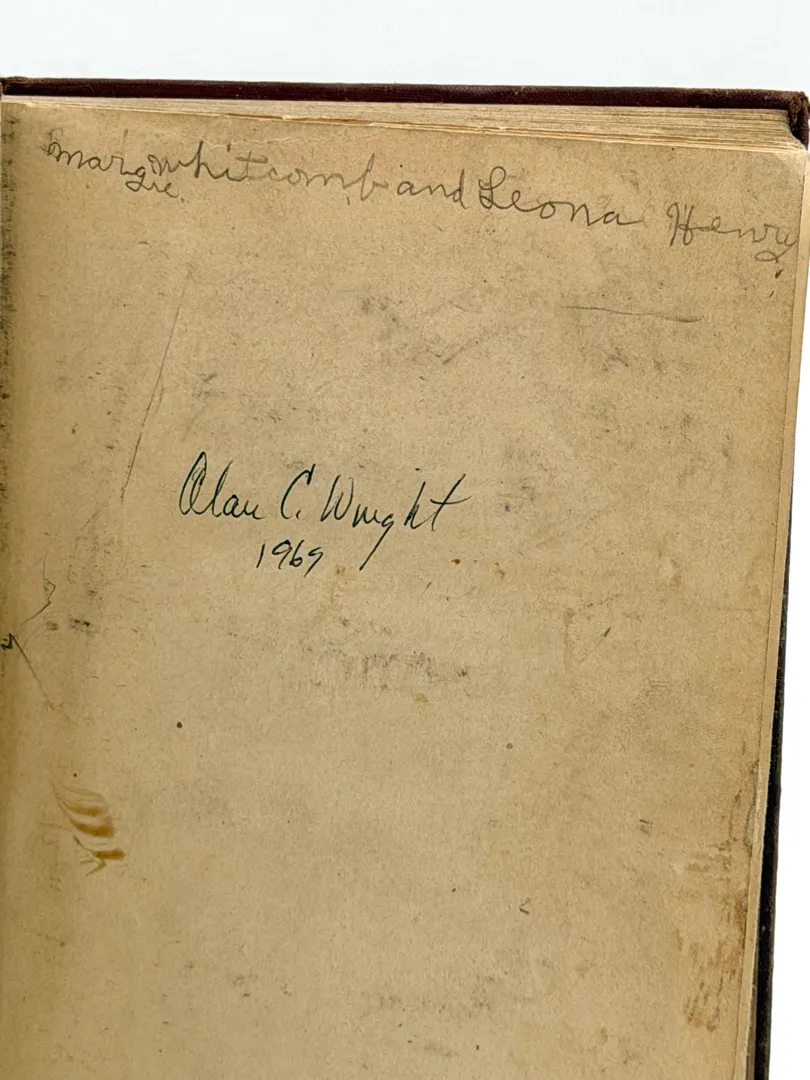 Margie Whitcomb and Leona Henry
Alan C. Wright
1969